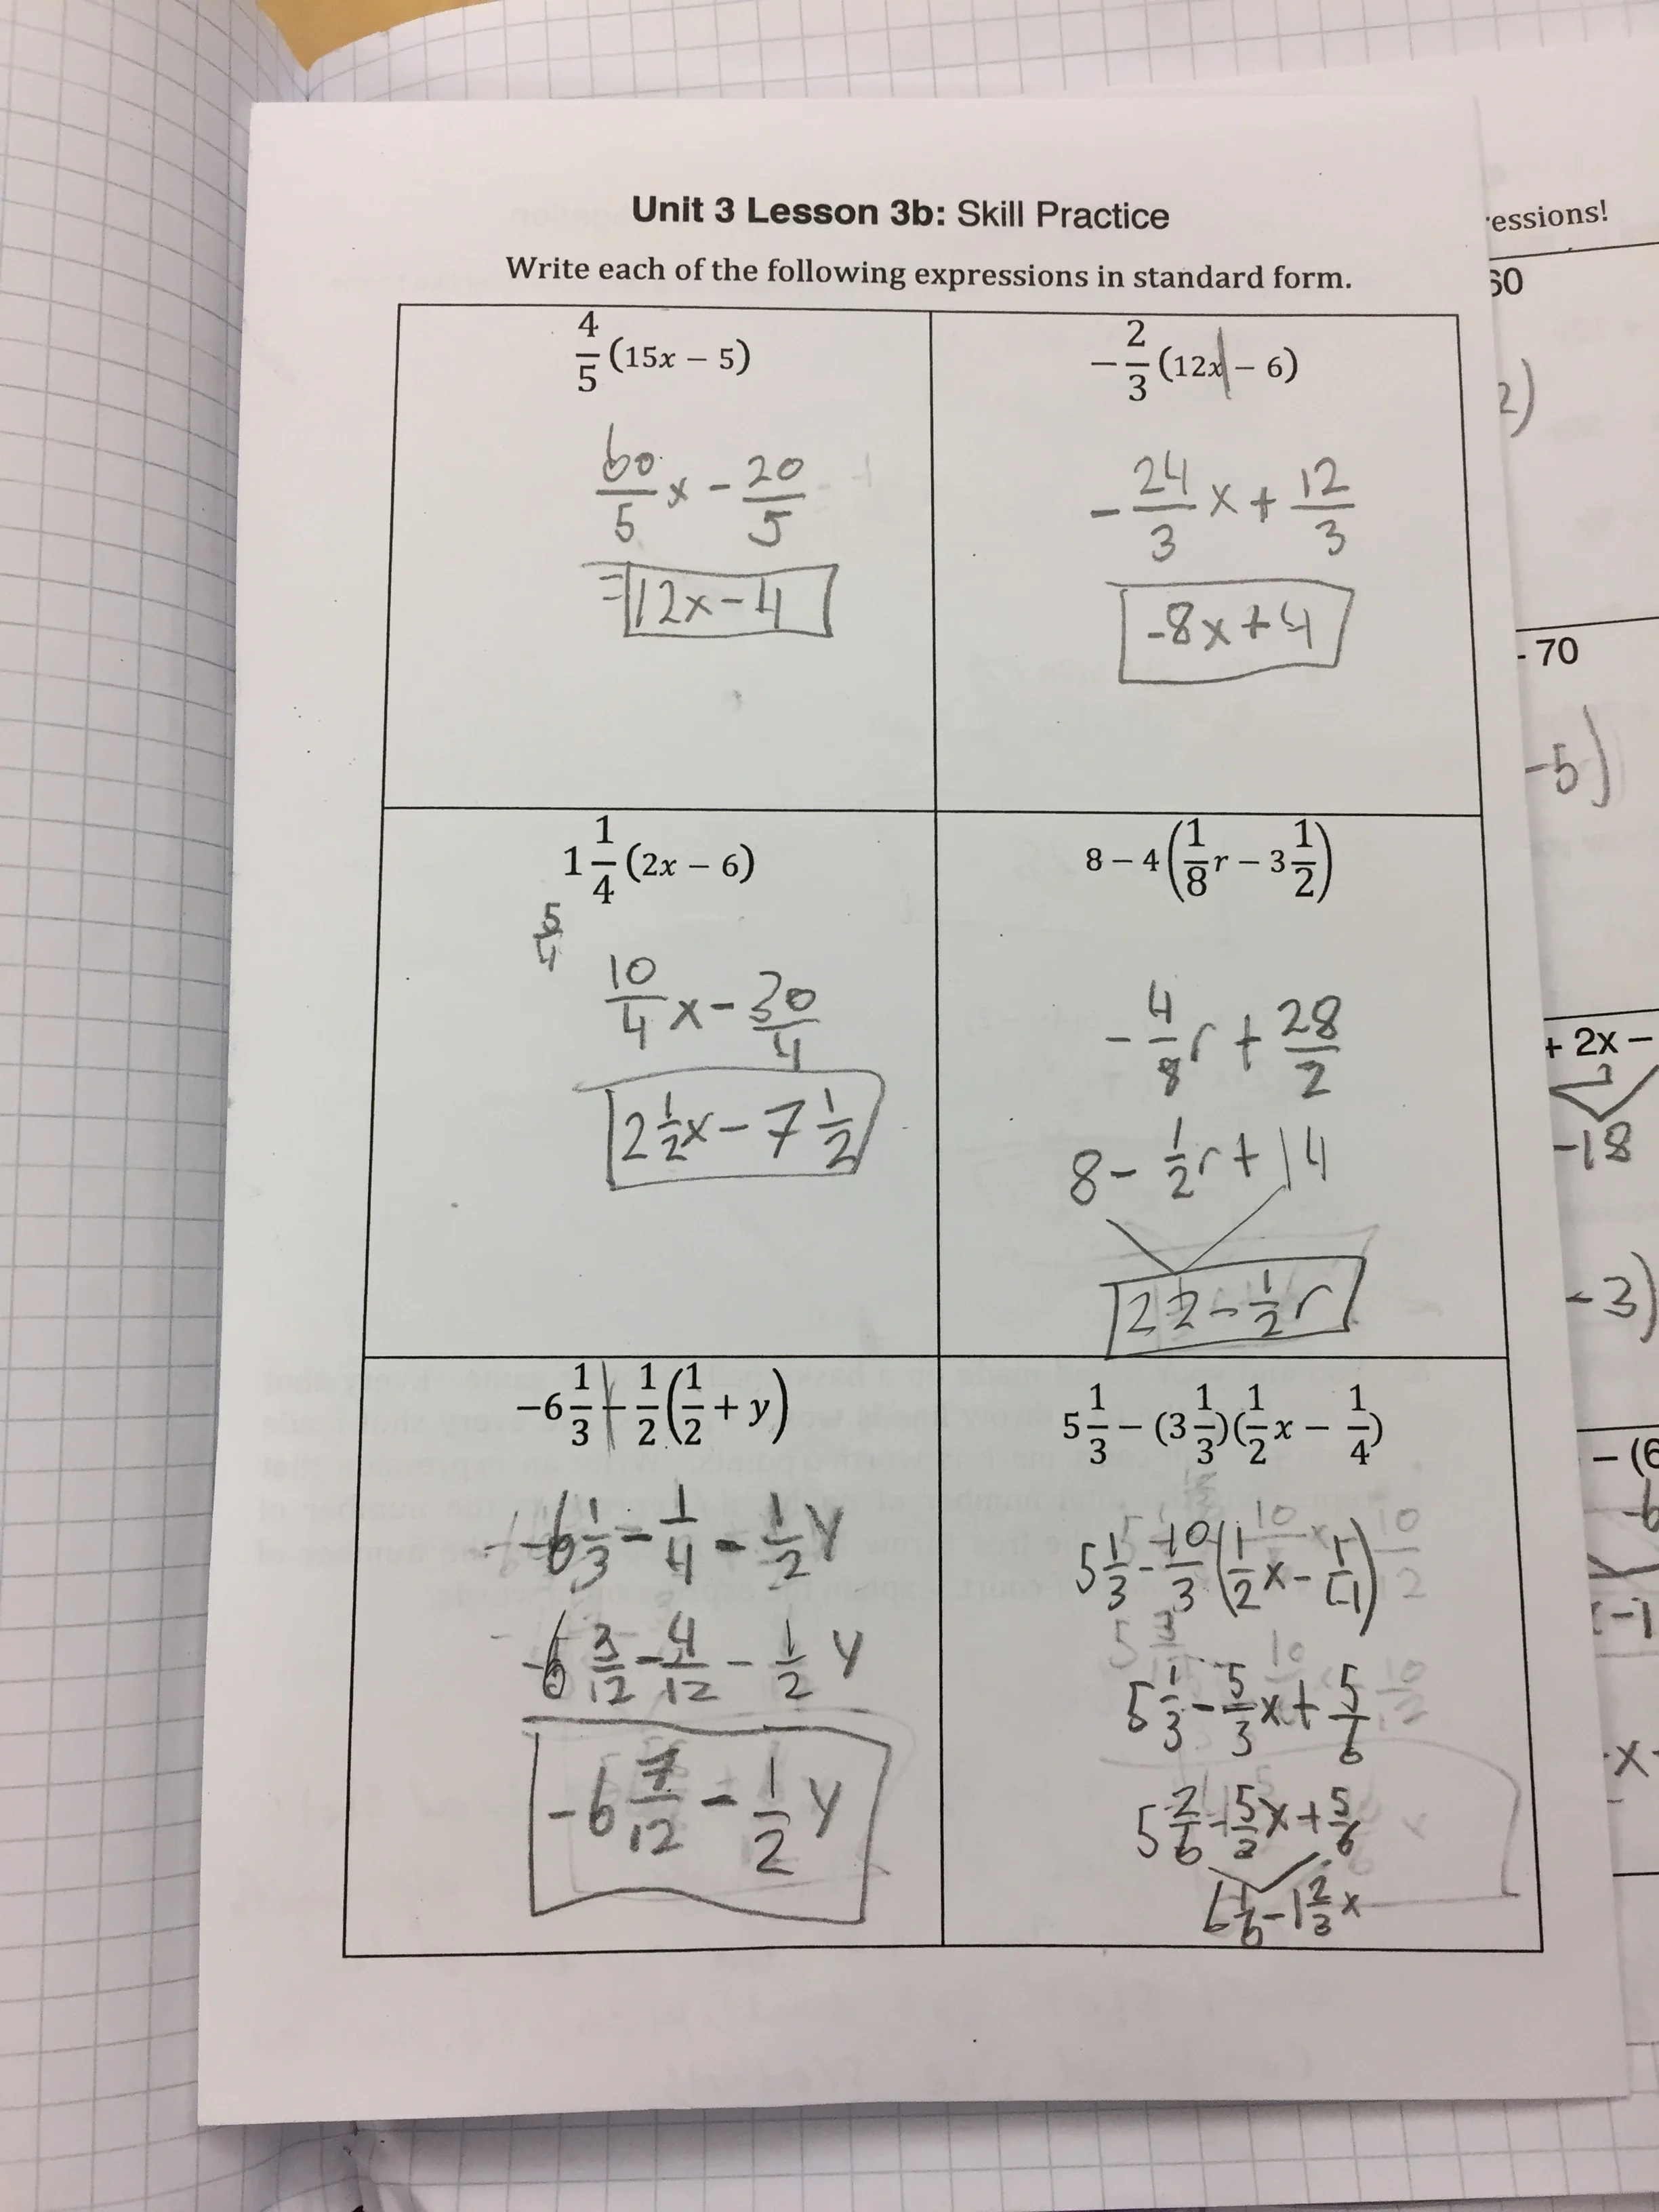 Unit 3 Lesson 3b: Skill Practice
Write each of the following expressions in standard form.
4/5 (15x − 5)
60/5 x - 20/5
= 12x - 4
-2/3 (12x − 6)
- 24/3 x + 12/3
-8x + 4
1 1/4 (2x − 6)
5/4
10/4 x - 30/4
2 1/2 x - 7 1/2
8 − 4(1/8 r − 3 1/2)
- 4/8 r + 28/2
8 - 1/2 r + 14
22 - 1/2 r
−6 1/3 − 1/2 (1/2 + y)
-6 1/3 - 1/4 - 1/2 y
-6 3/12 - 4/12 - 1/2 y
-6 7/12 - 1/2 y
5 1/3 − (3 1/3)(1/2 x − 1/4)
5 1/3 - 10/3 (1/2 x - 1/4)
5 1/3 - 5/3 x + 5/6
5 2/6 - 5/3 x + 5/6
6 1/6 - 1 2/3 x
essions!
60
2)
- 70
-5)
+ 2x −
-18
-3)
− (6
-6
x-